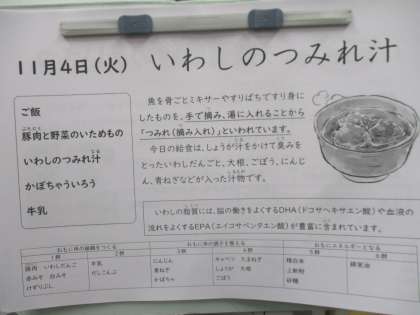 11月4日(火) いわしのつみれ汁
ご飯
豚肉と野菜のいためもの
いわしのつみれ汁
かぼちゃういろう
牛乳
魚を骨ごとミキサーやすりばちですり身
にしたものを、手で摘み、湯に入れることから
「つみれ(摘み入れ)」といわれています。
今日の給食は、しょうが汁をかけて臭みを
とったいわしだんごと、大根、ごぼう、にんじ
ん、青ねぎなどが入った汁物です。
いわしの脂質には、脳の働きをよくするDHA(ドコサヘキサエン酸)や血液の
流れをよくするEPA(エイコサペンタエン酸)が豊富に含まれています。
おもに体の組織をつくる おもに体の調子を整える おもにエネルギーとなる
1群 2群 3群 4群 5群 6群
豚肉 いわしだんご 牛乳 にんじん キャベツ たまねぎ 精白米 綿実油
赤みそ 白みそ だしこんぶ 青ねぎ しょうが 大根 上新粉
けずりぶし かぼちゃ ごぼう 砂糖